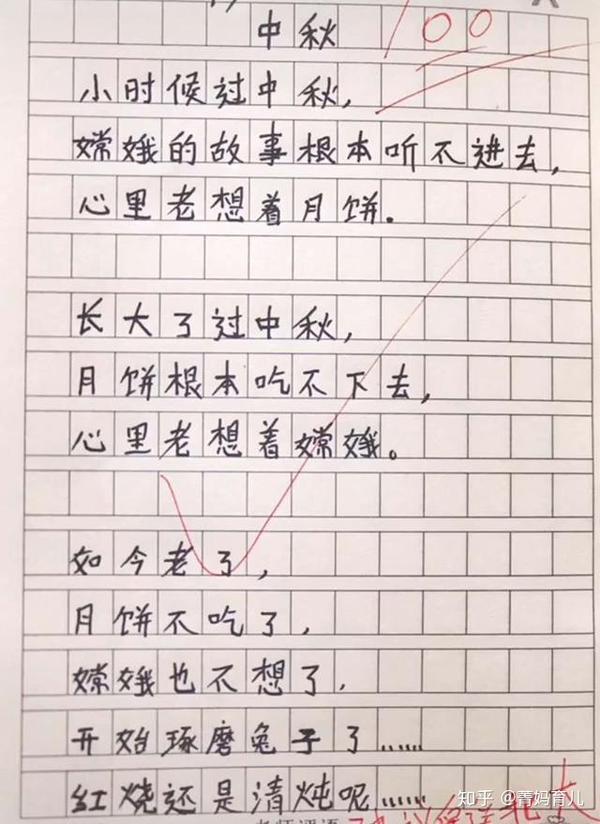 中秋
100
小时候过中秋，
嫦娥的故事根本听不进去，
心里老想着月饼。
长大了过中秋，
月饼根本吃不下去，
心里老想着嫦娥。
如今老了，
月饼不吃了，
嫦娥也不想了，
开始琢磨兔子了……
红烧还是清炖呢……
知乎 @菁妈育儿